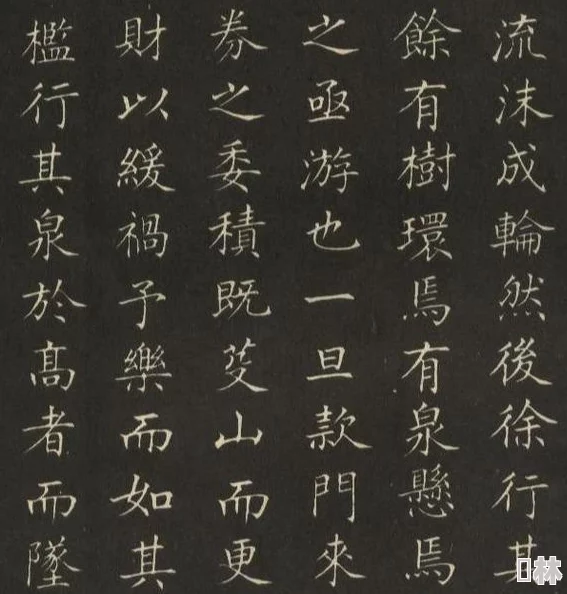 流沫成輪然後徐行其
餘有樹環焉有泉懸焉
之亟游也一旦款門來
券之委積既芟山而更
財以緩禍予樂而如其
檻行其泉於高者而墜
林